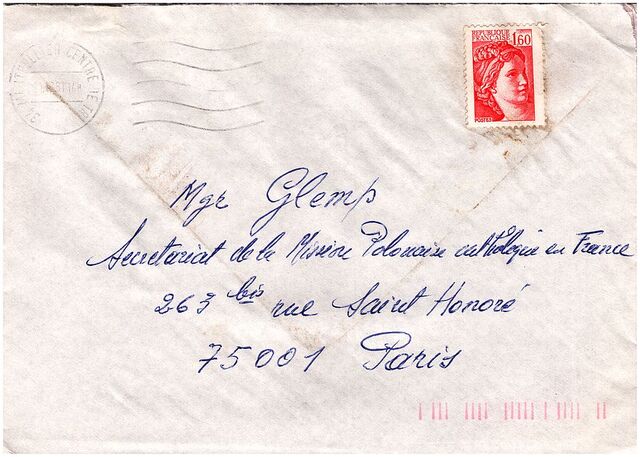 REPUBLIQUE
FRANCAISE 1,60
POSTES
Mgr Glemp
Secretariat de la Mission Polonaise catholique en France
263 bis rue Saint Honoré
75001 Paris